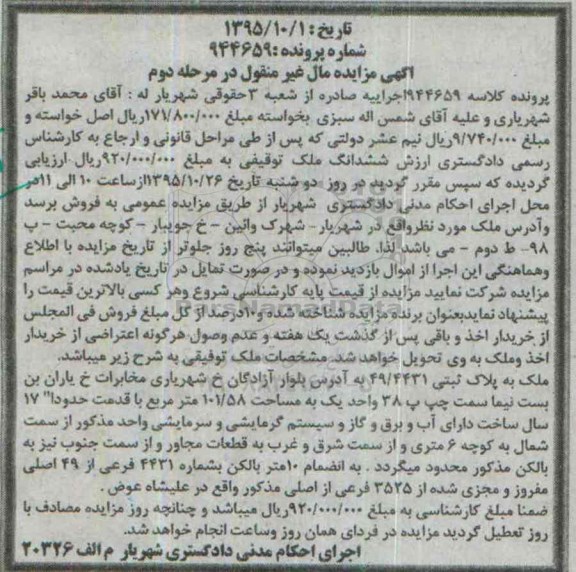 تاریخ : ۱۳۹۵/۱۰/۱
شماره پرونده : ۹۴۴۶۵۹
آگهی مزایده مال غیر منقول در مرحله دوم
پرونده کلاسه ۹۴۴۶۵۹اجراییه صادره از شعبه ۳حقوقی شهریار له : آقای محمد باقر
شهریاری و علیه آقای شمس اله سبزی بخواسته مبلغ ۱۷۱/۸۰۰/۰۰۰ریال اصل خواسته و
مبلغ ۹/۷۴۰/۰۰۰ریال نیم عشر دولتی که پس از طی مراحل قانونی و ارجاع به کارشناس
رسمی دادگستری ارزش ششدانگ ملک توقیفی به مبلغ ۹۲۰/۰۰۰/۰۰۰ریال ارزیابی
گردیده که سپس مقرر گردید در روز دو شنبه تاریخ ۱۳۹۵/۱۰/۲۶ازساعت ۱۰ الی ۱۱در
محل اجرای احکام مدنی دادگستری شهریار از طریق مزایده عمومی به فروش برسد
وآدرس ملک مورد نظرواقع در شهریار- شهرک وائین - خ جویبار - کوچه محبت - پ
۹۸- ط دوم - می باشد. لذا. طالبین میتوانند پنج روز جلوتر از تاریخ مزایده با اطلاع
وهماهنگی این اجرا از اموال بازدید نموده و در صورت تمایل در تاریخ یادشده در مراسم
مزایده شرکت نمایید مزایده از قیمت پایه کارشناسی شروع وهر کسی بالاترین قیمت را
پیشنهاد نمایدبعنوان برنده مزایده شناخته شده و۱۰درصد از کل مبلغ فروش فی المجلس
از خریدار اخذ و باقی پس از گذشت یک هفته و عدم وصول هرگونه اعتراضی از خریدار
اخذ وملک به وی تحویل خواهد شد. مشخصات ملک توقیفی به شرح زیر میباشد.
ملک به پلاک ثبتی ۴۹/۴۴۳۱ به آدرس بلوار آزادگان خ شهریاری مخابرات خ یاران بن
بست نیما سمت چپ پ ۳۸ واحد یک به مساحت ۱۰۱/۵۸ متر مربع با قدمت حدودا" ۱۷
سال ساخت دارای آب و برق و گاز و سیستم گرمایشی و سرمایشی واحد مذکور از سمت
شمال به کوچه ۶ متری و از سمت شرق و غرب به قطعات مجاور و از سمت جنوب نیز به
بالکن مذکور محدود میگردد . به انضمام ۱۰متر بالکن بشماره ۴۴۳۱ فرعی از ۴۹ اصلی
مفروز و مجزی شده از ۳۵۲۵ فرعی از اصلی مذکور واقع در علیشاه عوض .
ضمنا مبلغ کارشناسی به مبلغ ۹۲۰/۰۰۰/۰۰۰ریال میباشد و چنانچه روز مزایده مصادف با
روز تعطیل گردید مزایده در فردای همان روز وساعت انجام خواهد شد.
اجرای احکام مدنی دادگستری شهریار م الف ۲۰۳۲۶